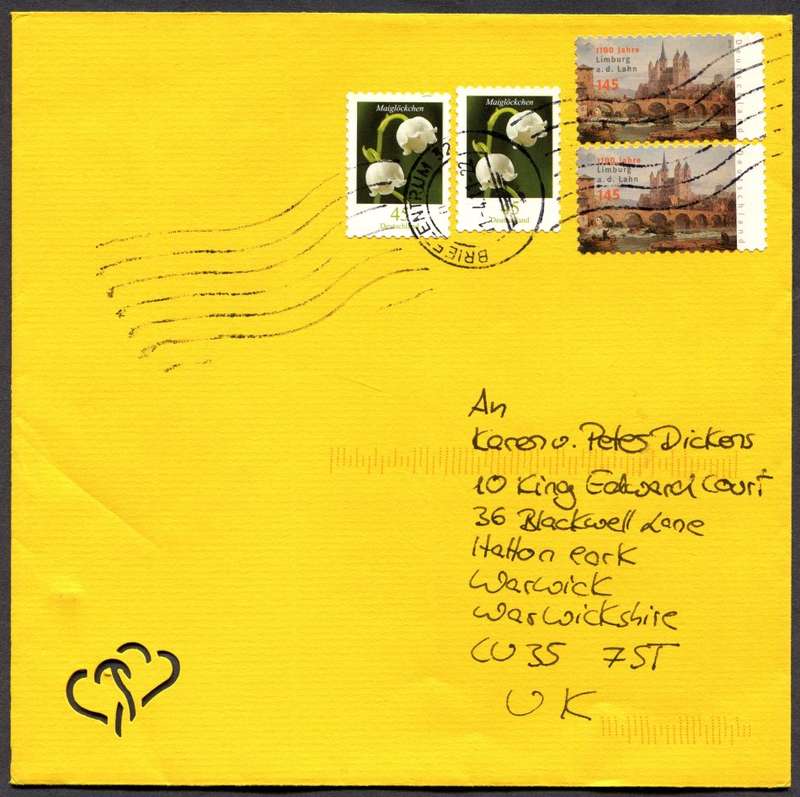 Maiglöckchen
45
Deutschland
Maiglöckchen
45
Deutschland
1100 Jahre
Limburg
a.d. Lahn
145
Deutschland
1100 Jahre
Limburg
a.d. Lahn
145
Deutschland
BRIEFZENTRUM
An
Karen u. Peter Dickens
10 King Edward Court
36 Blackwell Lane
Hatton Park
Warwick
Warwickshire
CV35 7ST
UK